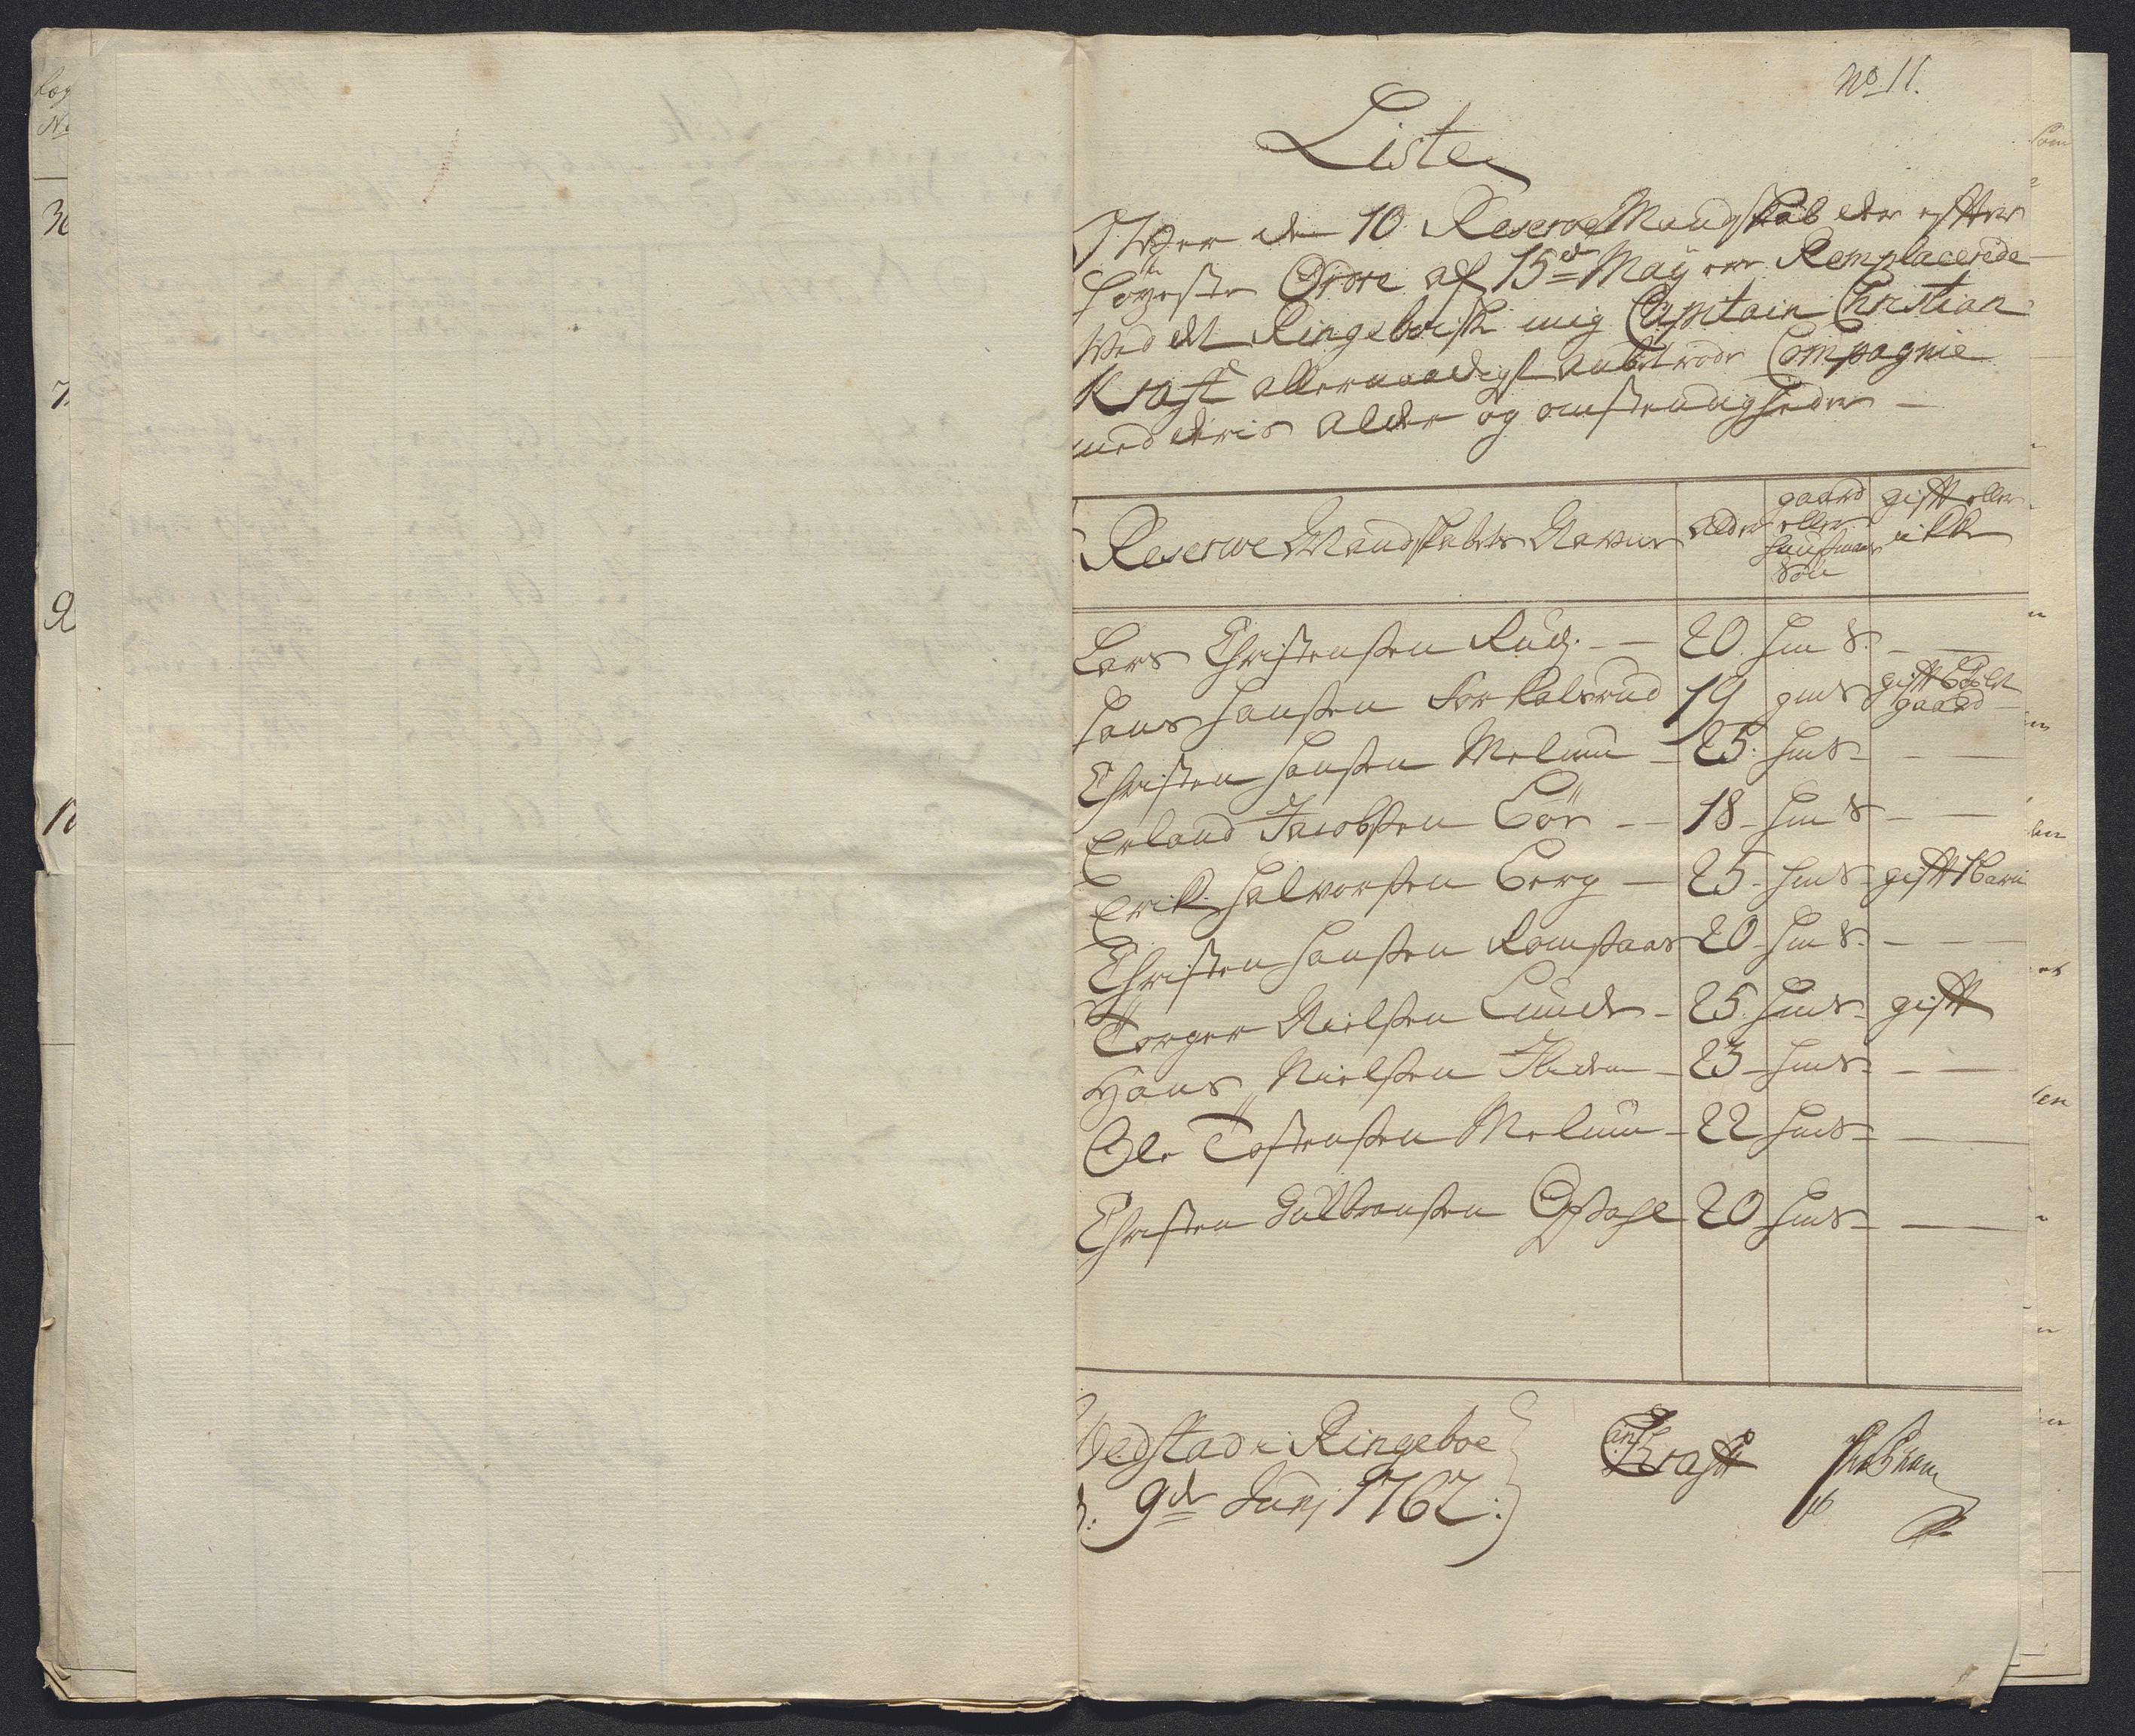 No 11.
Liste
Over de 10 Reserve Mandskab der efter
høyeste Ordre af 15de May er Remplacerede
ved det Ringeboiske mig Captain Christian
Kraft allernaadigst anbetrode Compagnie
med deris Alder og omstendigheder –
Reserve Mandskabets Navne
Alder
gaard
eller
huusmands
Søn
gift eller
ikke
Lars Christensen Rud. – 20. hm S. –
Hans Hansen Forkalsrud 19 gmS gift
gaard
Christen Hansen Melum – 25. hmS –
Erland Jacobsen Bör – 18 – hm S –
Erik Halvorsen Berg – 25 – hmS – gift 1 barn
Christen Hansen Romsaas 20 – hm S. –
Torger Nielsen Lunde – 25. hmS – gift
Hans Nielsen – 23 – hmS –
Ole Tostensen Melum – 22 hmS –
Christen Gulbransen Opsahl 20 hmS –
Vedstad i Ringeboe
d: 9de Junj 1762.
Kraft